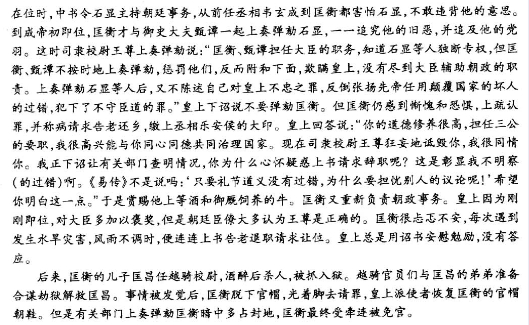 在位时，中书令石显主持朝廷事务，从前任丞相韦玄成到匡衡都害怕石显，不敢违背他的意思。
到成帝初即位，匡衡才与御史大夫甄谭一起上奏弹劾石显，一一追究他的旧恶，并追及他的党
羽。这时司隶校尉王尊上奏弹劾说：“匡衡、甄谭担任大臣的职务，知道石显等人独断专权，但匡
衡、甄谭不按时地上奏弹劾，惩罚他们，反而附和下面，欺瞒皇上，没有尽到大臣辅助朝政的职
责。上奏弹劾石显等人后，又不陈述自己对皇上不忠之罪，反倒张扬先帝任用颠覆国家的坏人
的过错，犯下了不守臣道的罪。”皇上下诏说不要弹劾匡衡。但匡衡仍感到惭愧和恐惧，上疏认
罪，并称病请求告老还乡，缴上丞相乐安侯的大印。皇上回答说：“你的道德修养很高，担任三公
的要职，我很高兴能与你同心同德共同治理国家。现在司隶校尉王尊狂妄地诋毁你，我很同情
你。我正下诏让有关部门查明情况，你为什么心怀疑惑上书请求辞职呢？这是彰显我不明察
（的过错）啊。《易传》不是说吗：‘只要礼节道义没有过错，为什么要担忧别人的议论呢！’希望
你明白这一点。”于是赏赐他上等酒和御厩饲养的牛。匡衡又重新负责朝政事务。皇上因为刚
刚即位，对大臣多加以褒奖，但是朝廷臣僚大多认为王尊是正确的。匡衡很忐忑不安，每次遇到
发生水旱灾害，风雨不调时，便连连上书告老退职请求让位。皇上总是用诏书安慰勉励，没有答
应。
后来，匡衡的儿子匡昌任越骑校尉，酒醉后杀人，被抓入狱。越骑官员们与匡昌的弟弟准备
合谋劫狱解救匡昌。事情被发觉后，匡衡脱下官帽，光着脚去请罪，皇上派使者恢复匡衡的官帽
朝鞋。但是有关部门上奏弹劾匡衡暗中多占封地，匡衡最终受牵连被免官。